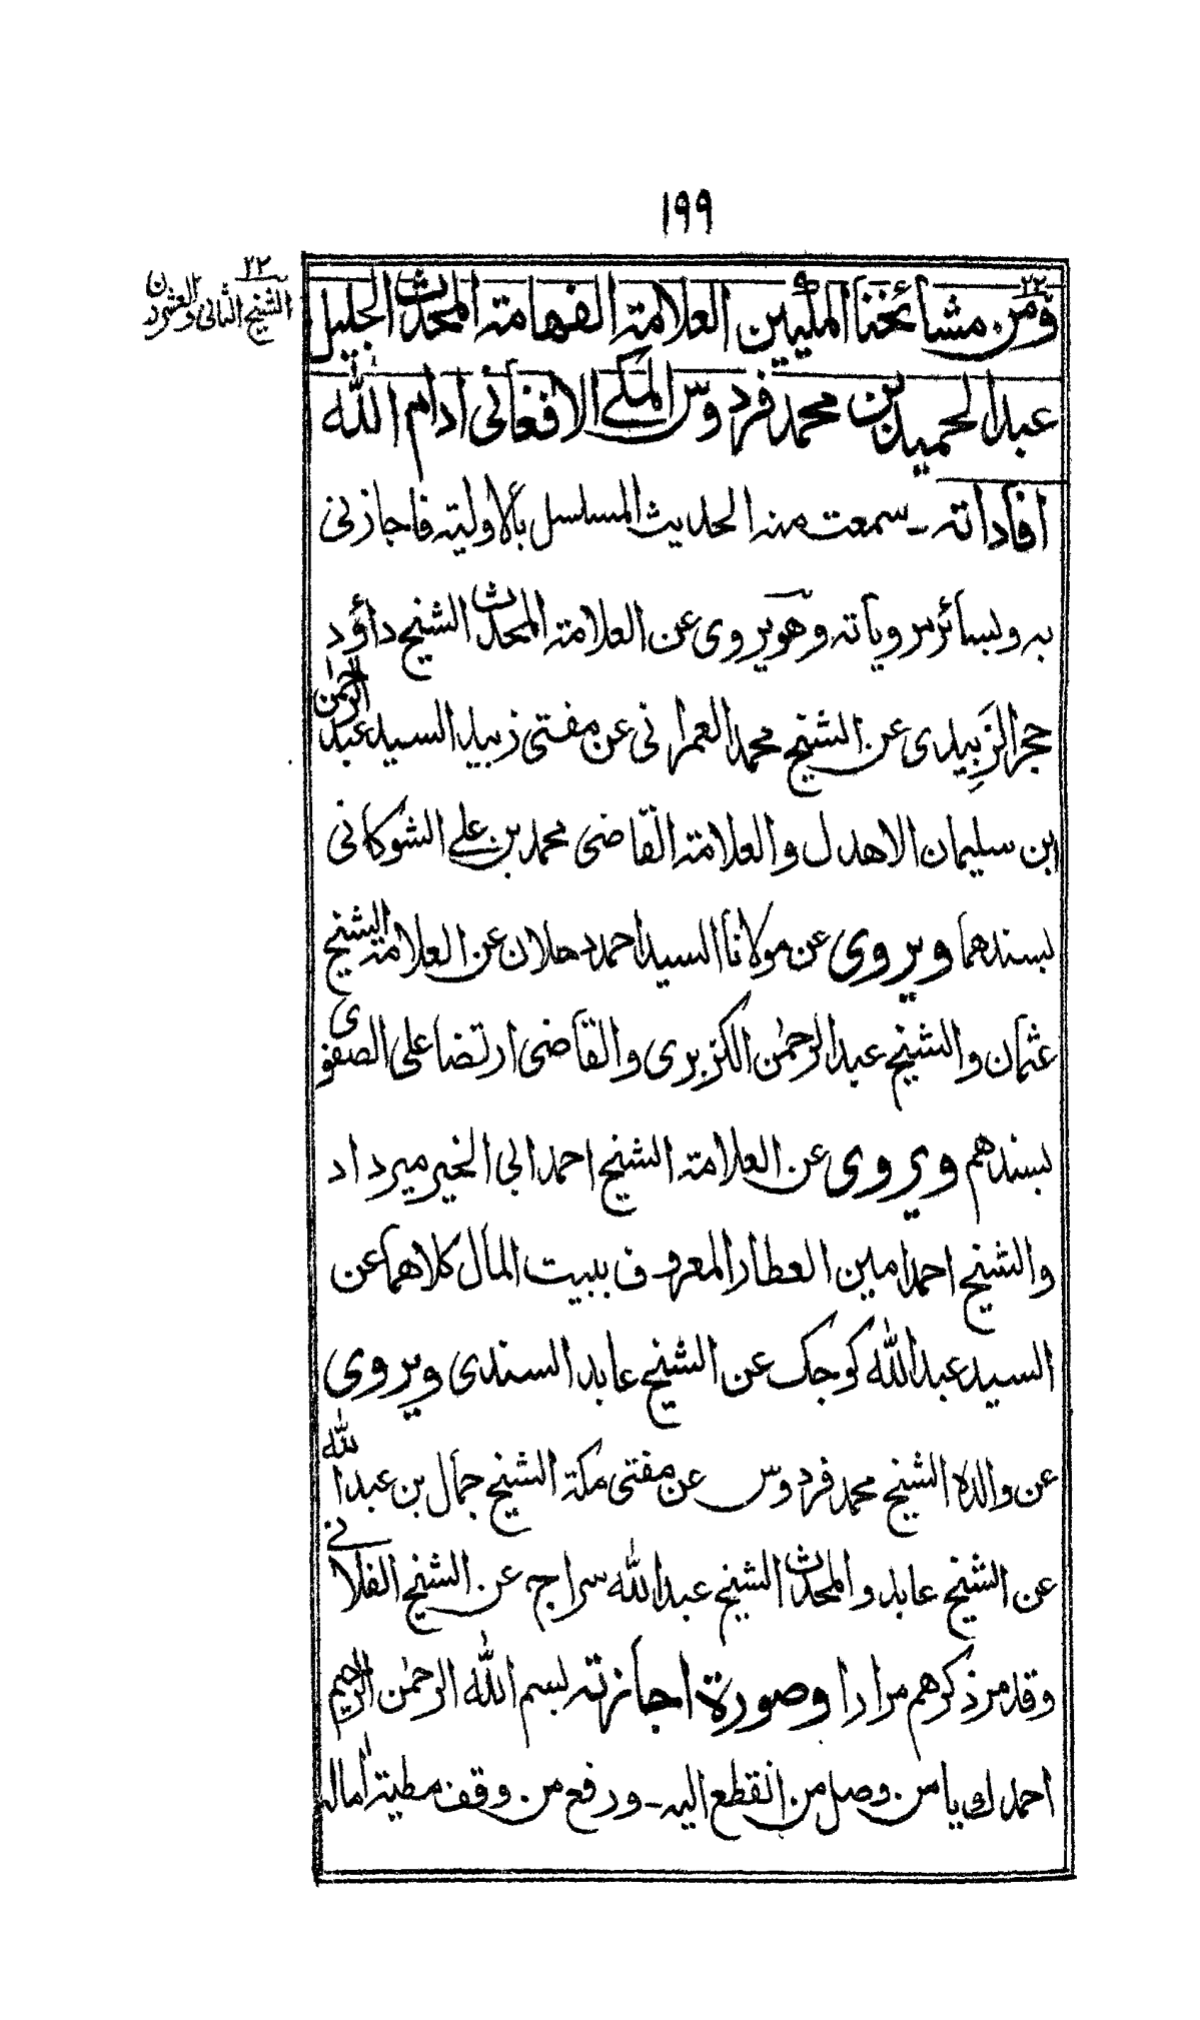 ١٩٩
٢٢
الشيخ الثانى والعشرون
٢٢
ومن مشائخنا المكيين العلامة الفهامة المحدث الجليل
عبد الحميد بن محمد فردوس المكے الافغانى ادام الله
افاداته ـ سمعت منه الحديث المسلسل بالاولية فاجازنى
به وبسائر مروياته وهو يروى عن العلامة المحدث الشيخ داؤد
حجر الزَبِيدى عن الشيخ محمد العمرانى عن مفتى زبيد السيد عبد الرحمٰن
ابن سليمان الاهدل والعلامة القاضى محمد بن علے الشوكانى
بسندهما ويروى عن مولانا السيد احمد دحلان عن العلامة الشيخ
عثمان والشيخ عبد الرحمٰن الكزبرى والقاضى ارتضا على الصفوى
بسندهم ويروى عن العلامة الشيخ احمد ابى الخير ميرداد
والشيخ احمد امين العطار المعروف ببيت المال كلاهما عن
السيد عبد الله كوجك عن الشيخ عابد السندى ويروى
عن والده الشيخ محمد فردوس عن مفتى مكة الشيخ جمال بن عبد الله
عن الشيخ عابد والمحدث الشيخ عبد الله سراج عن الشيخ الفلانے
وقد مر ذكرهم مرارا وصورة اجازته بسم الله الرحمٰن الرحيم
احمدك يا من وصل من انقطع اليه ـ ورفع من وقف مطية اٰماله